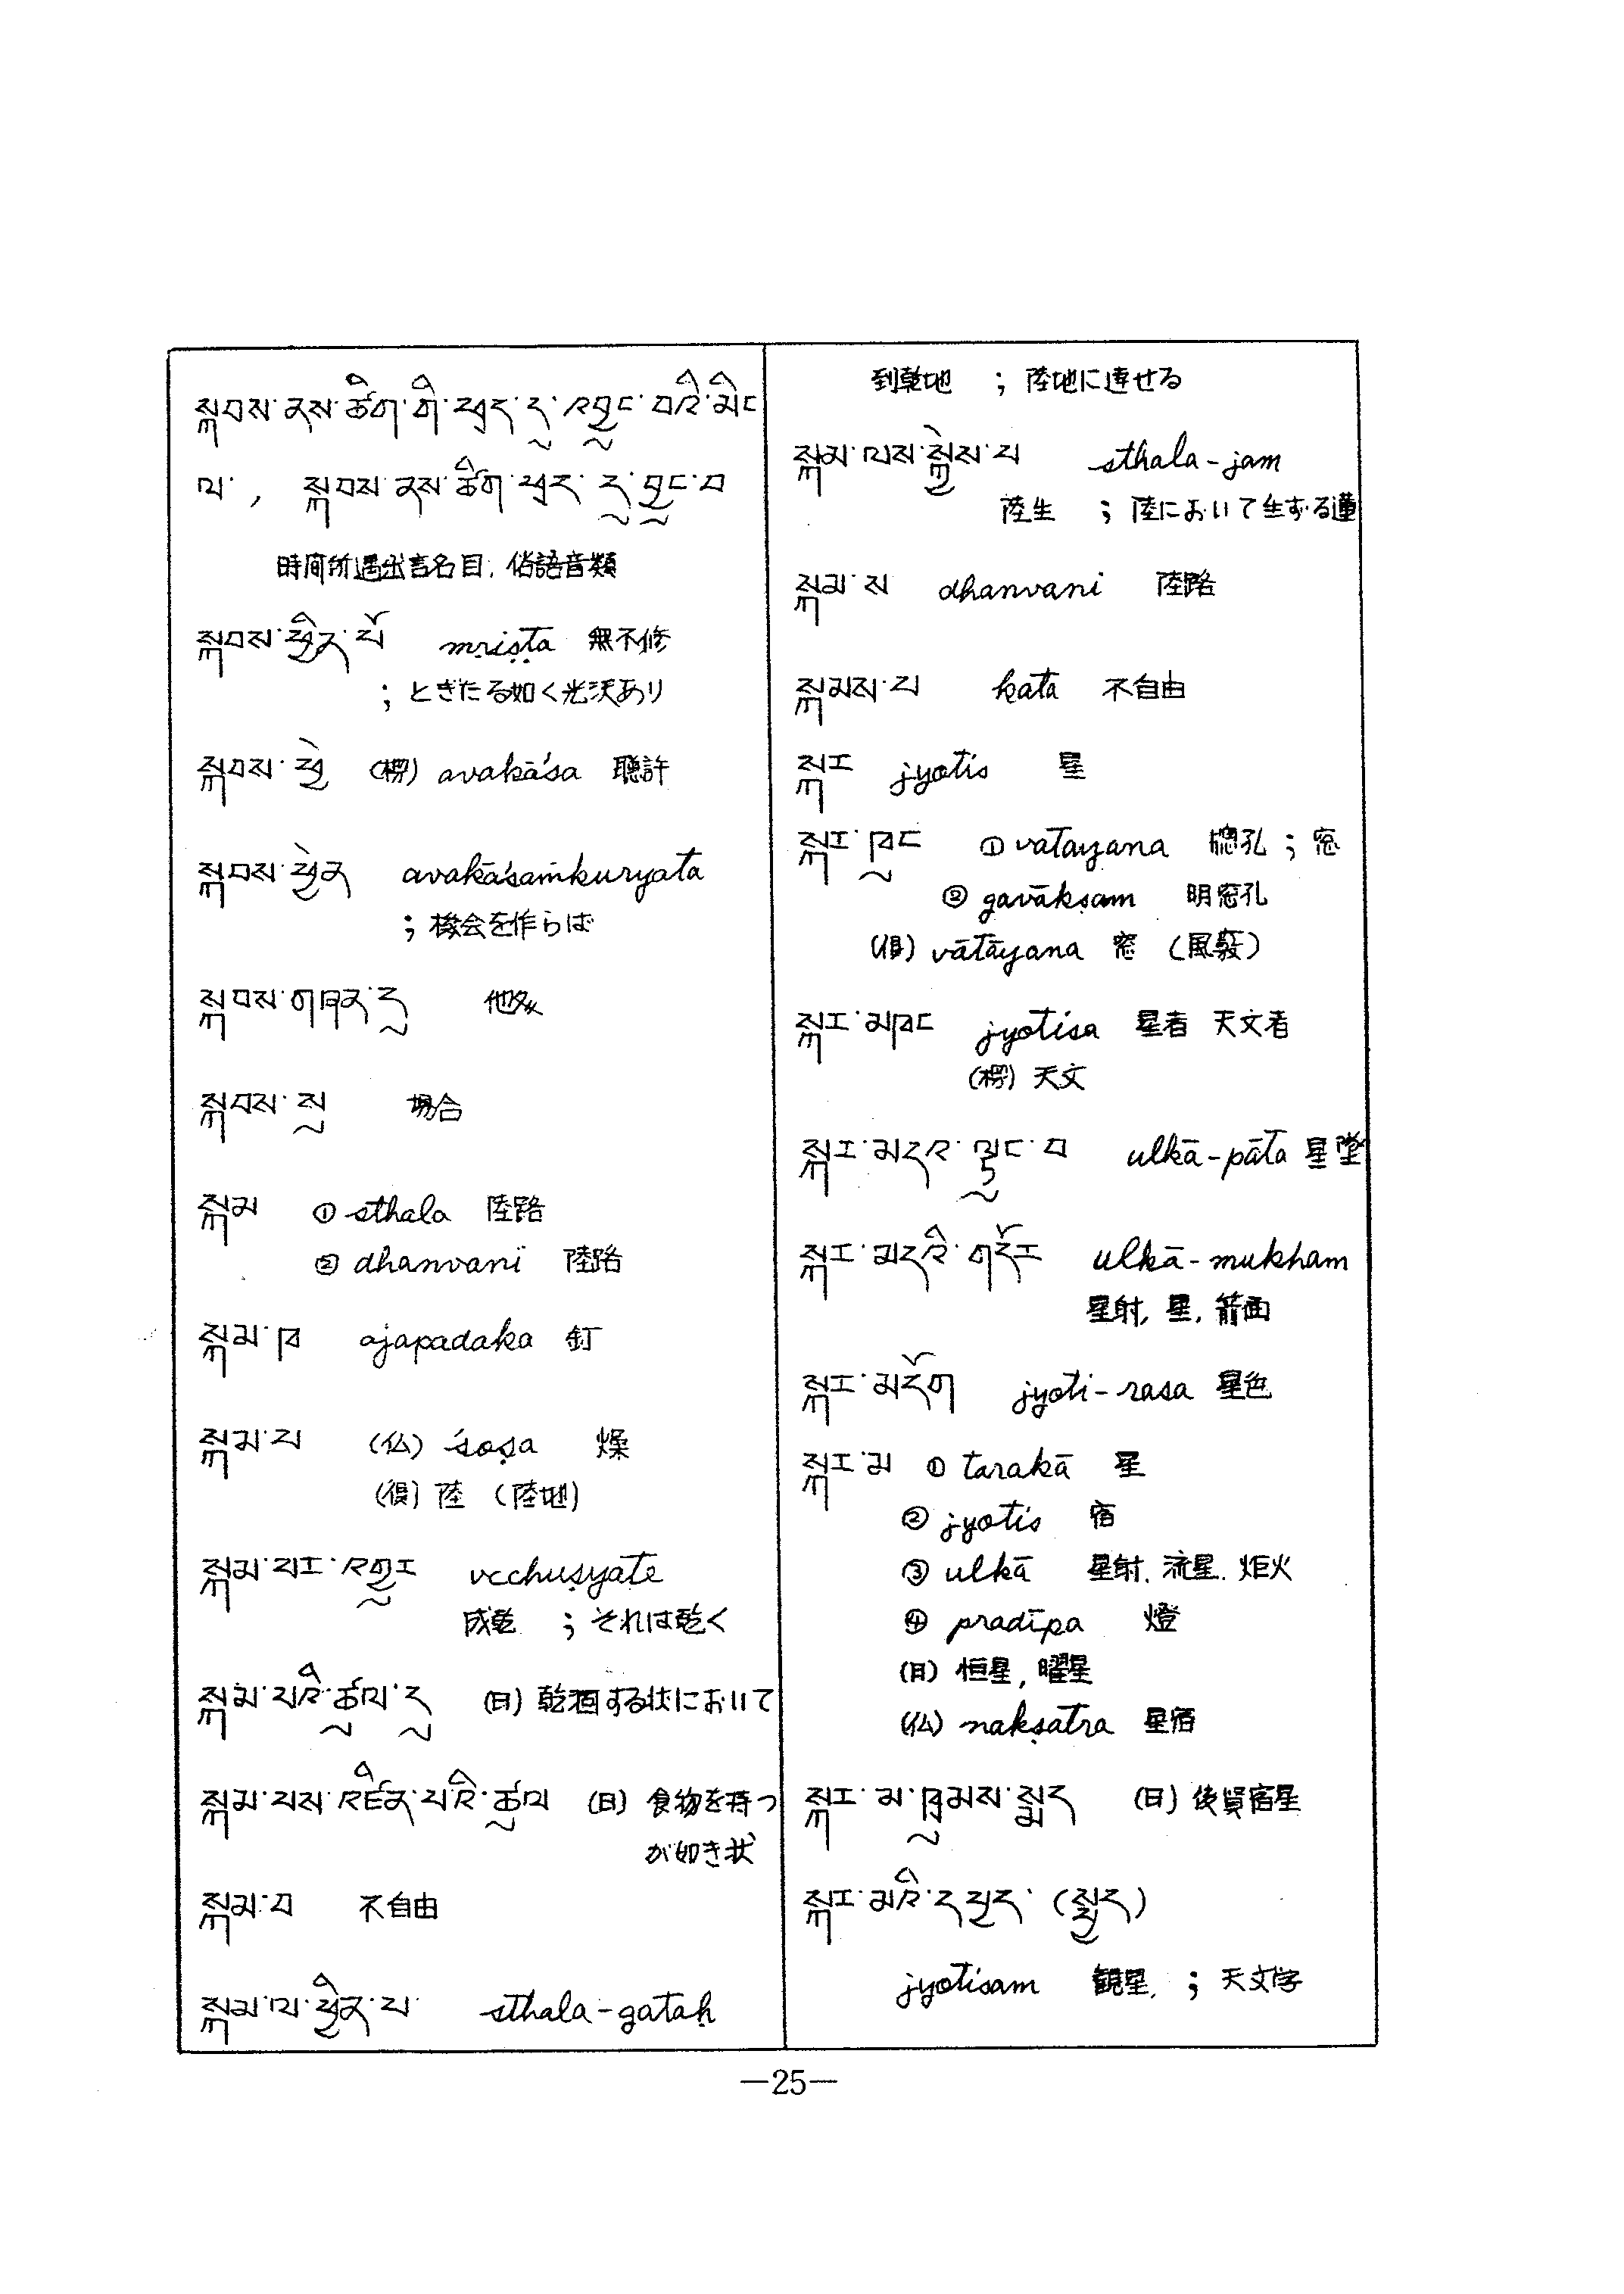 སྐབས་ནས་ཚིག་གི་ཕྲད་དུ་འབྱུང་བའི་མིང
ལ་, སྐབས་ནས་ཚིག་ཕྲད་དུ་བྱུང་བ
時间所遇出言名目, 俗語音類
སྐབས་ཕྱིན་པོ mṛiṣṭa 無不修
; ときたる如く光沢あり
སྐབས་ཕྱེ (楞) avakāśa 聴許
སྐབས་ཕྱེན avakāśaṁkuryata
; 機会を作らば
སྐབས་གཞན་དུ 他処
སྐབས་སུ 場合
སྐམ ① sthala 陸路
② dhanvani 陸路
སྐམ་ཁ ajapadaka 釘
སྐམ་པ (仏) śoṣa 燥
(倶) 陸 (陸地)
སྐམ་པར་འགྱུར vcchuṣyate
成乾 ; それは乾く
སྐམ་པའི་ཚུལ་དུ (日) 乾涸する状において
སྐམ་པས་འཛིན་པའི་ཚུལ (日) 食物を持つ
が如き状
སྐམ་བ 不自由
སྐམ་ལ་ཕྱིན་པ་ sthala-gataḥ
到乾地 ; 陸地に達せる
སྐམ་ལས་སྐྱེས་པ sthala-jam
陸生 ; 陸において生ずる蓮
སྐམ་ས dhanvani 陸路
སྐམས་པ kata 不自由
སྐར jyotis 星
སྐར་ཁུང ① vatayana 牕孔 ; 窓
② gavākṣam 明窓孔
(倶) vātāyana 窓
སྐར་མཁང jyotisa 星者 天文者
(楞) 天文
སྐར་མདའ་ལྟུང་བ ulkā-pāta 星墮
སྐར་མདའི་གདོང ulkā-mukham
星射, 星, 箭面
སྐར་མདོག jyoti-rasa 星色
སྐར་མ ① tarakā 星
② jyotis 宿
③ ulkā 星射. 流星. 炬火
④ pradīpa 燈
(日) 恒星, 曜星
(仏) nakṣatra 星宿
སྐར་མ་ཁྲུམས་སྨད (日) 後賢宿星
སྐར་མའི་དཔྱད་ (སྤྱད)
jyotisam 観星, ; 天文学
—25—